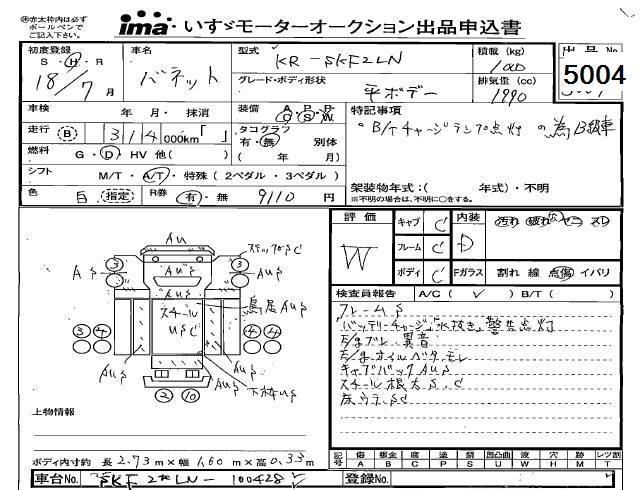 ㊟赤太枠内は必ず
ボールペンで
ご記入下さい。
ima いすゞモーターオークション出品申込書
初度登録
S・H・R
18/7月
車名
バネット
型式
KR-SKF2LN
グレード・ボディ形状
平ボデー
積載(kg)
1000
排気量(cc)
1990
出品No
5004
車検 年 月・ 抹消
走行 B 314 000km「 」
燃料 G・D・HV 他( )
シフト M/T・A/T・特殊(2ペダル・3ペダル)
色 白 指定 R券 有・無 9110 円
装備 A P P
C S W
タコグラフ 別体
有・無 ( 年 月)
特記事項
"B/Tチャージランプ点灯"の為B級車
架装物年式:( 年式)・不明
※不明の場合は、不明に○をする。
評価 W
キャブ C'
フレーム C'
ボディ C'
内装 D
汚れ 破れ ヤニ スレ
Fガラス 割れ 線 点傷 イバリ
検査員報告 A/C(✓) B/T( )
フレームS
「バッテリーチャージ」「水抜き」警告点灯
E/gブレ、異音
E/gオイルベタ、モレ
キャブバックAuS
スチール根太S,C
床ウラ、SC
Au
ステップSC
3 3
AS AuS
AuS
AuS
スチール
USC
鳥居AuS
4 4
3 3
2 10
AuS
下枠US
上物情報
ボディ内寸約 長2.73m×幅1.60m×高0.33m
記号 傷 板金 凹 塗 錆 凹凸曲 波 穴 跡 レツ割
A B C P S U W H M T
車台No. SKF2LN-100428
登録No.